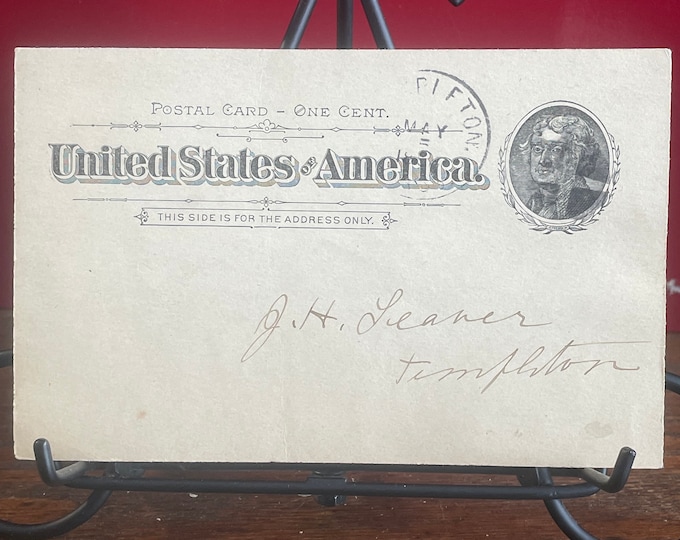 POSTAL CARD – ONE CENT.
United States of America.
THIS SIDE IS FOR THE ADDRESS ONLY.
MAY
J. H. Leaver
Templeton